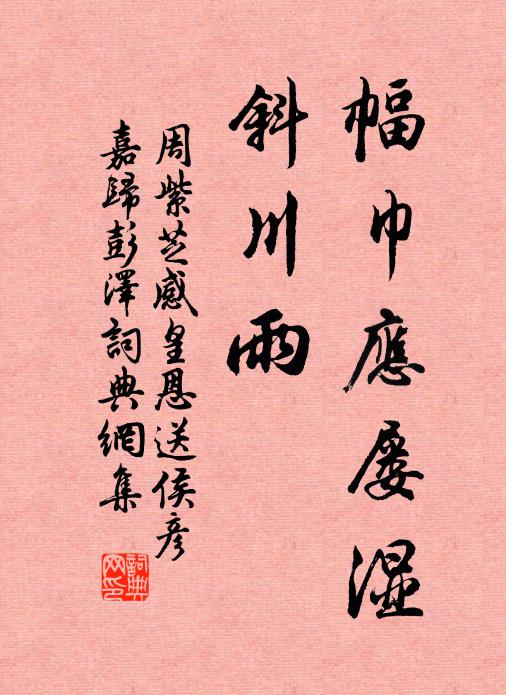 幅巾應屡濕
斜川雨
周紫芝感皇恩送侯彦
嘉歸彭澤詞典網集
詞典网印